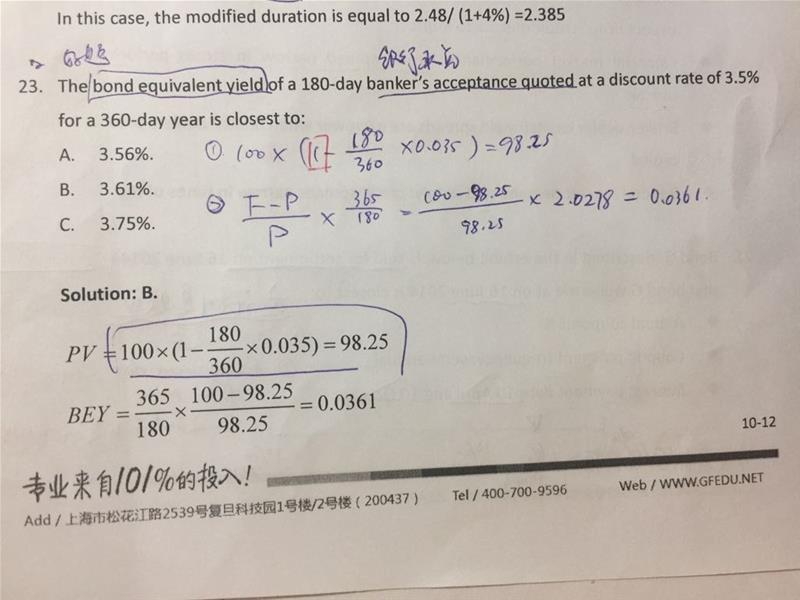 In this case, the modified duration is equal to 2.48/ (1+4%) =2.385
23. The bond equivalent yield of a 180-day banker's acceptance quoted at a discount rate of 3.5%
for a 360-day year is closest to:
A. 3.56%.
B. 3.61%.
C. 3.75%.
① 100 × (1 - 180/360 × 0.035) = 98.25
② F-P/P × 365/180 = 100-98.25/98.25 × 2.0278 = 0.0361.
Solution: B.
PV = 100×(1-180/360×0.035) = 98.25
BEY = 365/180 × 100-98.25/98.25 = 0.0361
10-12
专业来自101%的投入!
Add / 上海市松花江路2539号复旦科技园1号楼/2号楼（200437） Tel / 400-700-9596 Web / WWW.GFEDU.NET